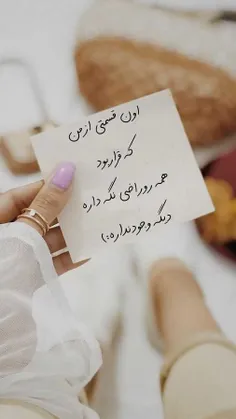 اون قسمتی از من
که قرار بود
همه رو راضی نگه داره
دیگه وجود نداره:)